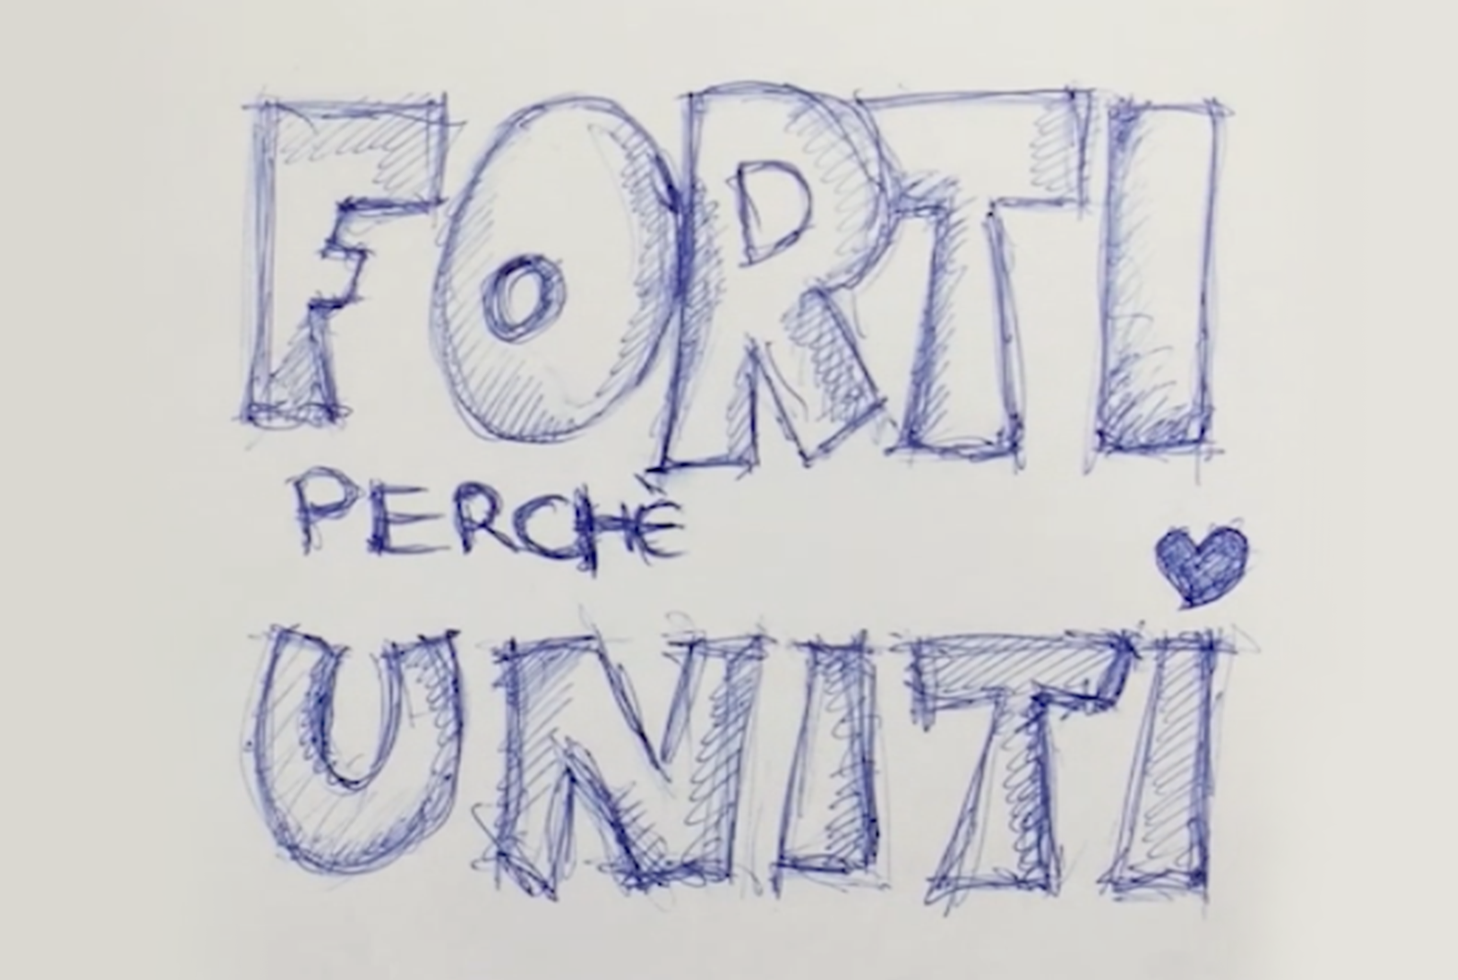 FORTI
PERCHÈ
UNITI